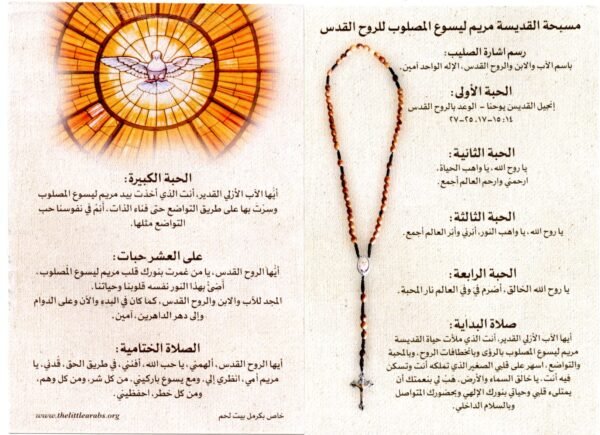 مسبحة القديسة مريم ليسوع المصلوب للروح القدس
رسم اشارة الصليب:
باسم الآب والابن والروح القدس، الإله الواحد أمين.
الحبة الأولى:
إنجيل القديس يوحنا - الوعد بالروح القدس
١٤: ١٥-١٧، ٢٥-٢٧
الحبة الثانية:
يا روح الله، يا واهب الحياة،
ارحمني وارحم العالم أجمع.
الحبة الثالثة:
يا روح الله، يا واهب النور، أنرني وأنر العالم أجمع.
الحبة الرابعة:
يا روح الله الخالق، أضرم في وفي العالم نار المحبة.
صلاة البداية:
أيها الآب الأزلي القدير، أنت الذي ملأت حياة القديسة
مريم ليسوع المصلوب بالرؤى وبانخطافات الروح، وبالمحبة
والتواضع، اسهر على قلبي الصغير الذي تملكه أنت وتسكن
فيه أنت، يا خالق السماء والأرض. هب لي بنعمتك أن
يمتلىء قلبي وحياتي بنورك الإلهي وبحضورك المتواصل
وبالسلام الداخلي.
الحبة الكبيرة:
أيُها الآب الأزلي القدير، أنت الذي أخذت بيد مريم ليسوع المصلوب
وسِرْتَ بها على طريق التواضع حتى فناء الذات، أنِمْ في نفوسنا حب
التواضع مثلها.
على العشر حبات:
أيُها الروح القدس، يا من غمرت بنورك قلب مريم ليسوع المصلوب،
أضئْ بهذا النور نفسه قلوبنا وحياتنا.
المجد للآب والابن والروح القدس، كما كان في البدء والآن وعلى الدوام
وإلى دهر الداهرين، أمين.
الصلاة الختامية:
أيها الروح القدس، ألهمني، يا حب الله، أفنني، في طريق الحق، قُدني، يا
مريم أمي، انظري إلي، ومع يسوع باركيني. من كل شر، ومن كل وهم،
ومن كل خطر، احفظيني.
خاص بكرمل بيت لحم
www.thelittlearabs.org